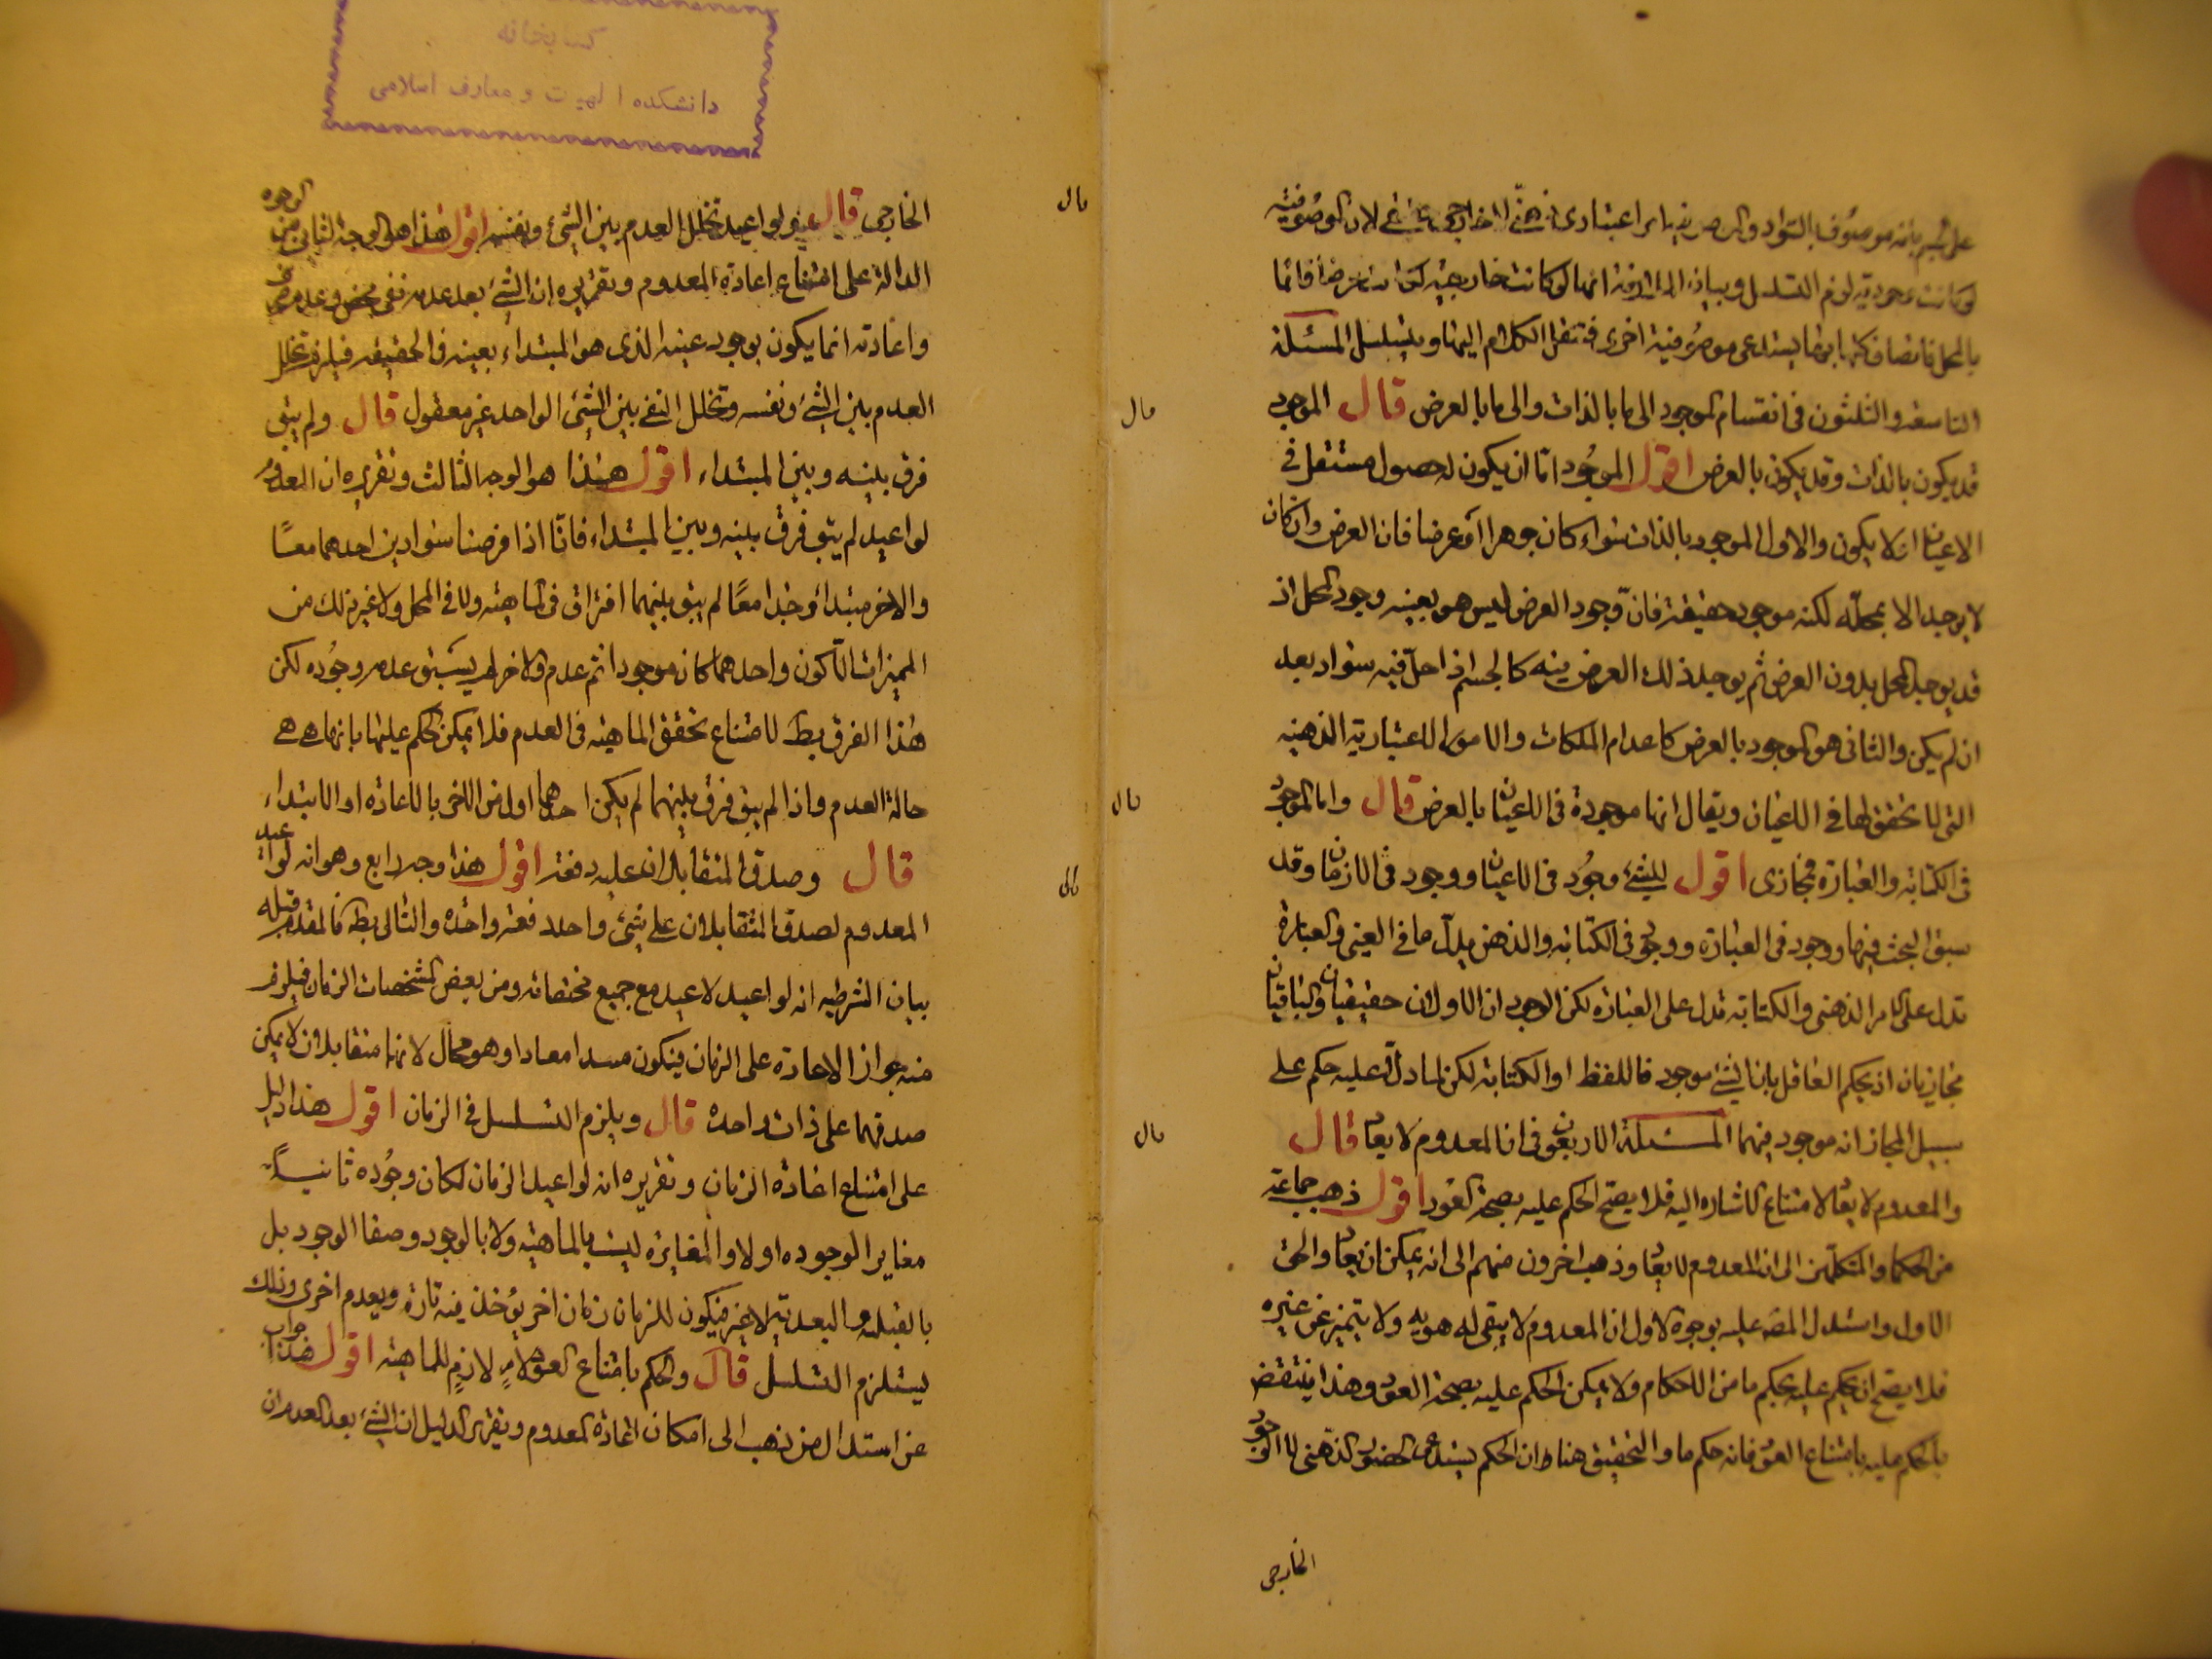 على الجسم بانه موصوف بالسواد والموصوفية امر اعتبارى ذهنى لا خارجى حقيقى لان الموصوفية
لو كانت وجودية لزم التسلسل وبيان الملازمة انها لو كانت خارجية لكانت عرضا قائما
بالمحل فاتصاف محلها بها يستدعى موصوفية اخرى فننقل الكلام اليها ويتسلسل المسئلة
التاسعة والثلثون فى انقسام الموجود الى ما بالذات والى ما بالعرض قال الموجود
قد يكون بالذات وقد يكون بالعرض اقول الموجود اما ان يكون له حصول مستقل فى
الاعيان او لا يكون والاول الموجود بالذات سواء كان جوهرا او عرضا فان العرض وان كان
لا يوجد الا بمحله لكنه موجود حقيقة فان وجود العرض ليس هو بعينه وجود المحل اذ
قد يوجد المحل بدون العرض ثم يوجد ذلك العرض فيه كالجسم اذا حل فيه سواد بعد
ان لم يكن والثانى هو الموجود بالعرض كاعدام الملكات والامور الاعتبارية الذهنية
التى لا تحقق لها فى الاعيان ويقال انها موجودة فى الاعيان بالعرض قال واما الموجود
فى الكتابة والعبارة مجازى اقول للشئ وجود فى الاعيان ووجود فى الاذهان وقد
سبق البحث فيهما ووجود فى العبارة ووجود فى الكتابة والذهن يدل ما فى العين والعبارة
تدل على الامر الذهنى والكتابة تدل على العبارة لكن الوجودان الاولان حقيقيان والباقيان
مجازيان اذ يحكم العاقل بان الشئ موجود فى اللفظ او الكتابة لكن لما دلا عليه حكم على
سبيل المجاز انه موجود فيهما المسئلة الاربعون فى ان المعدوم لا يعاد قال
والمعدوم لا يعاد لامتناع الاشارة اليه فلا يصح الحكم عليه بصحة العود اقول ذهب جماعة
من الحكماء والمتكلمين الى ان المعدوم لا يعاد وذهب اخرون منهم الى انه يمكن ان يعاد والحق
الاول واستدل المصـ عليه بوجوه الاول ان المعدوم لا يبقى له هوية ولا يتميز عن غيره
فلا يصح ان يحكم عليه بحكم ما من الاحكام ولا يمكن الحكم عليه بصحة العود وهذا ينتقض
بالحكم عليه بامتناع العود فانه حكم ما والتحقيق هنا ان الحكم يستدعى الحضور الذهنى لا الوجود
الخارجى
قال
قال
قال
قال
قال
كتابخانه
دانشكده الهيات و معارف اسلامى
الخارجى قال ولو اعيد تخلل العدم بين الشئ ونفسه اقول هذا هو الوجه الثانى من الوجوه
الدالة على امتناع اعادة المعدوم وتقريره ان الشئ بعد عدمه نفى محض وعدم صرف
واعادته انما يكون بوجود عينه الذى هو المبتداء بعينه فى الحقيقة فيلزم تخلل
العدم بين الشئ ونفسه وتخلل النفى بين الشئ الواحد غير معقول قال ولم يبق
فرق بينه وبين المبتداء اقول هذا هو الوجه الثالث وتقريره ان المعدوم
لو اعيد لم يبق فرق بينه وبين المبتداء فانا اذا فرضنا سوادين احدهما معاد
والاخر مبتدأ وجدا معًا لم يبق بينهما افتراق فى الماهية ولا فى المحل ولا غير ذلك من
المميزات الا كون واحدهما كان موجودا ثم عدم والاخر لم يسبق عدمه وجوده لكن
هذا الفرق بط لامتناع تحقق الماهية فى العدم فلا يمكن الحكم عليها بانها هى هى
حالة العدم واذا لم يبق فرق بينهما لم يكن احدهما اولى من الاخر بالاعادة او الابتداء
قال وصدق المتقابلان عليه دفعة اقول هذا وجه رابع وهو انه لو اعيد
المعدوم لصدق المتقابلان على شئ واحد دفعة واحدة والتالى بط فالمقدم مثله
بيان الشرطية انه لو اعيد لاعيد مع جميع مخصصاته ومن بعض المشخصات الزمان فيلزم
منه جواز الاعادة على الزمان فيكون مبتدا معادا وهو محال لانهما متقابلان لا يمكن
صدقهما على ذات واحدة قال ويلزم التسلسل فى الزمان اقول هذا دليل
على امتناع اعادة الزمان وتقريره انه لو اعيد الزمان لكان وجوده ثانيًا
مغايرا لوجوده اولا والمغايرة ليست بالماهية ولا بالوجود وصفا الوجود بل
بالقبلية والبعدية لا غير فيكون للزمان زمان اخر يوجد فيه تارة ويعدم اخرى وذلك
يستلزم التسلسل قال والحكم بامتناع العود لامر لازم للماهية اقول هذا جواب
عن استدلال من يذهب الى امكان اعادة المعدوم وتقرير الدليل ان الشئ بعد العدم ان